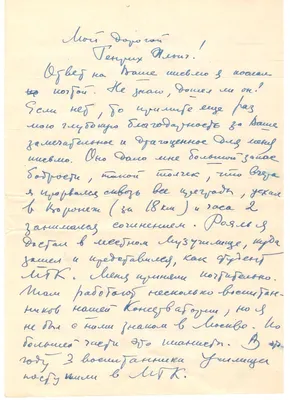 Мой дорогой
Генрих Ильич!
Ответ на Ваше письмо я послал
почтой. Не знаю, дошел ли он?
Если нет, то примите еще раз
мою глубокую благодарность за Ваше
замечательное и драгоценное для меня
письмо. Оно дало мне большой запас
бодрости, такой толчек, что вчера
я прорвался сквозь все преграды, уехал
в Воронеж (за 18 км) и часа 2
занимался сочинением. Рояль я
достал в местном Музучилище, куда
зашел и представился, как студент
МГК. Меня приняли почтительно.
Там работают несколько воспитан-
ников нашей Консерватории, но я
не был с ними знаком в Москве. По
большей части это пианисты. В этом
году 3 воспитанники училища
поступили в МГК.